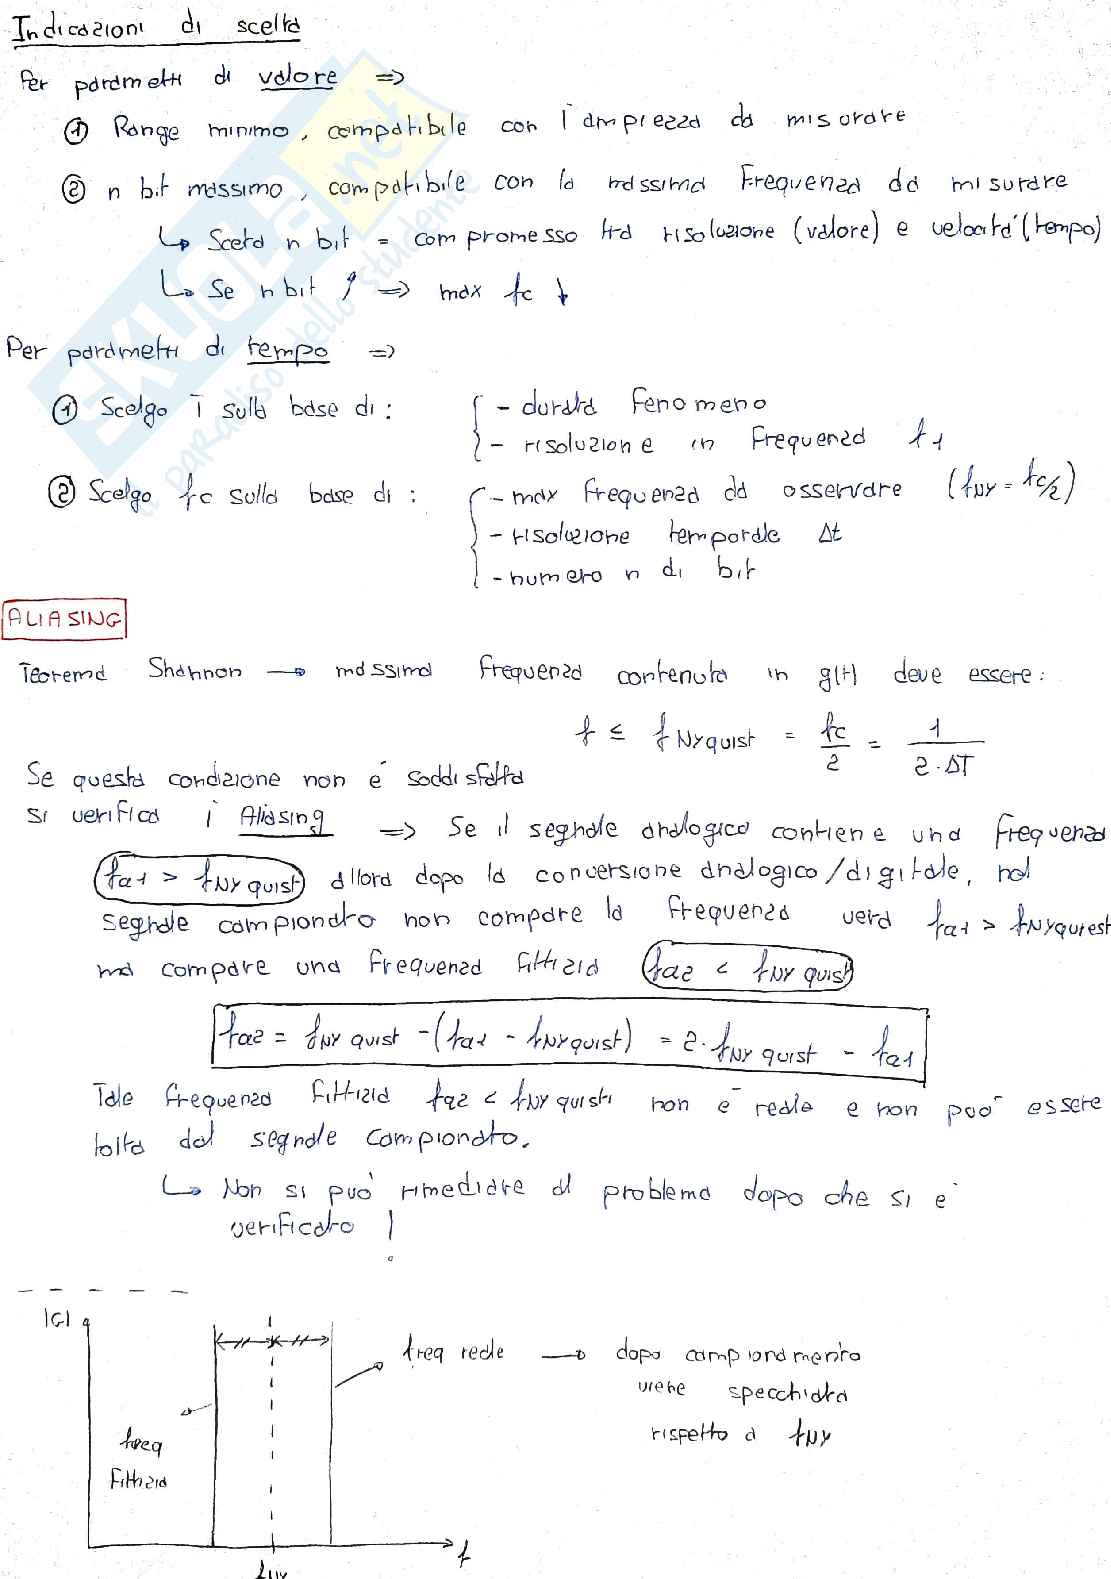 Indicazioni di scelta
Per parametri di valore =>
① Range minimo, compatibile con l'ampiezza da misurare
② n bit massimo, compatibile con la massima frequenza da misurare
↳ Scelta n bit = compromesso tra risoluzione (valore) e velocità (tempo)
↳ Se n bit ↑ => max fc ↓
Per parametri di tempo =>
① Scelgo T sulla base di: { - durata fenomeno
- risoluzione in frequenza f1
② Scelgo fc sulla base di: { - max frequenza da osservare (fNY = fc/2)
- risoluzione temporale Δt
- numero n di bit
ALIASING
Teorema Shannon → massima frequenza contenuta in g(t) deve essere:
f ≤ fNyquist = fc/2 = 1/(2·ΔT)
Se questa condizione non è soddisfatta
si verifica l'Aliasing => Se il segnale analogico contiene una frequenza
fa1 > fNyquist allora dopo la conversione analogico/digitale, nel
segnale campionato non compare la frequenza vera fa1 > fNyquist
ma compare una frequenza fittizia fa2 < fNyquist
fa2 = fNyquist - (fa1 - fNyquist) = 2·fNyquist - fa1
Tale frequenza fittizia fa2 < fNyquist non è reale e non può essere
tolta dal segnale campionato.
↳ Non si può rimediare al problema dopo che si è
verificato !
|G|
freq reale → dopo campionamento
viene specchiata
rispetto a fNY
freq
fittizia
f
fNY
SKUOLA.net
il paradiso dello studente